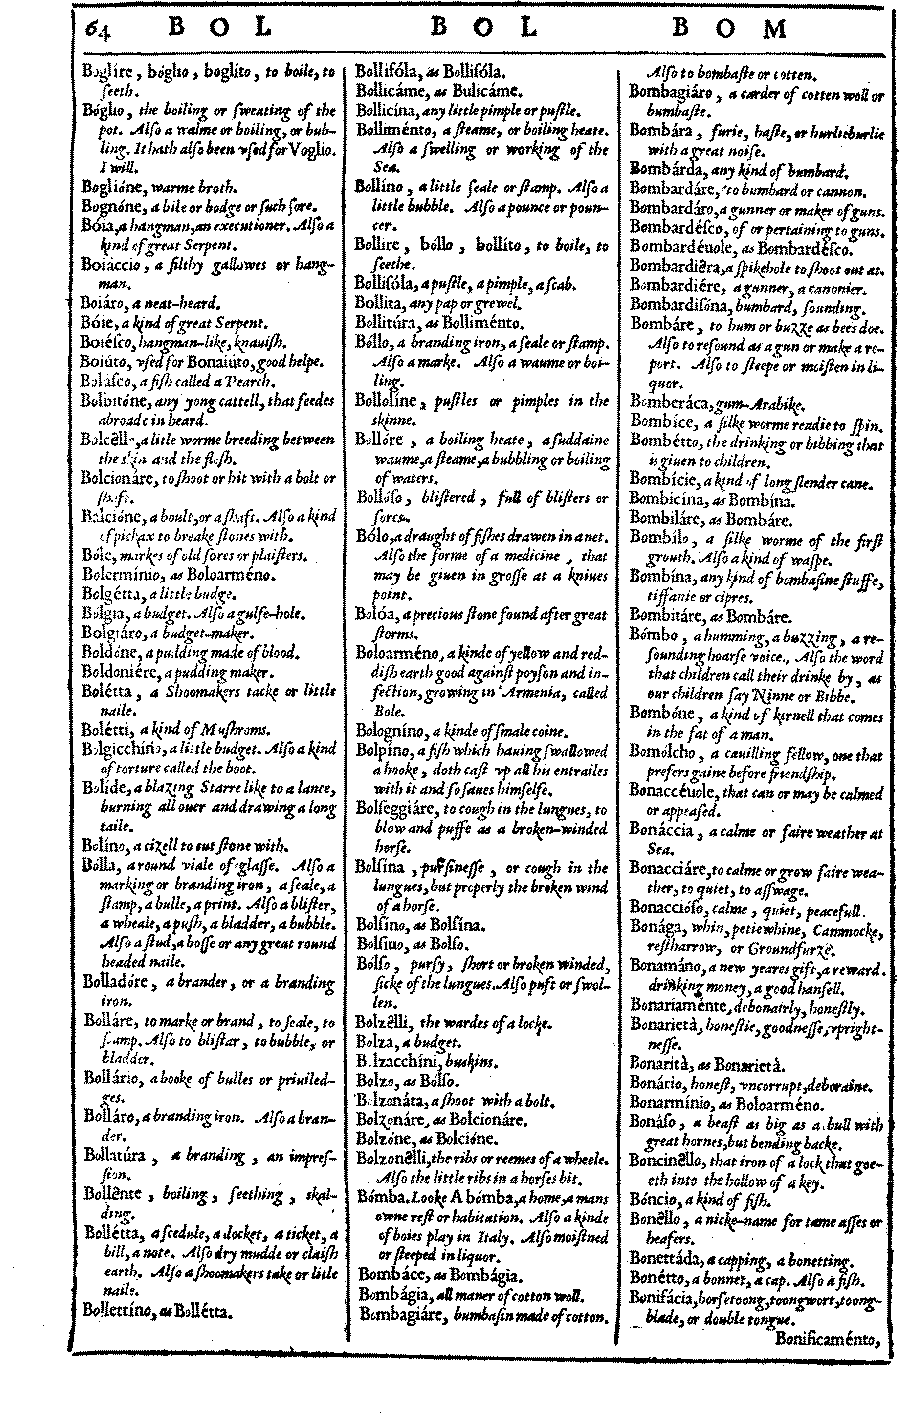 64 B O L B O L B O M
Boglíre, bóglio, boglíto, to boile, to
ſeeth.
Bóglio, the boiling or ſweating of the
pot. Alſo a walme or boiling, or bub-
ling. It hath alſo been vſed for Voglio.
I will.
Boglióne, warme broth.
Bognóne, a bile or bodge or ſuch ſore.
Bóia, a hangman, an executioner. Alſo a
kind of great Serpent.
Boiáccio, a filthy gallowes or hang-
man.
Boiáro, a neat-heard.
Bóie, a kind of great Serpent.
Boiéſco, hangman-like, knauiſh.
Boiúto, vſed for Bonaiúto, good helpe.
Boláſco, a fiſh called a Pearch.
Bolbitóne, any yong cattell, that feedes
abroade in heard.
Bolcêllo, a litle worme breeding betweene
the skin and the fleſh.
Bolcionáre, to ſhoot or hit with a bolt or
ſhaft.
Bolcióne, a boult, or a ſhaft. Alſo a kind
of pickax to breake ſtones with.
Bóle, markes of old ſores or plaiſters.
Bolermínio, as Boloarméno.
Bolgétta, a little budge.
Bólgia, a budget. Alſo a gulfe-hole.
Bolgiáro, a budget-maker.
Boldóne, a pudding made of blood.
Boldoniére, a pudding maker.
Bolétta, a Shoomakers tacke or little
naile.
Bolétti, a kind of Muſhroms.
Bolgicchíno, a little budget. Alſo a kind
of torture called the boot.
Bolíde, a blazing Starre like to a lance,
burning all ouer and drawing a long
taile.
Bolíno, a cizell to cut ſtone with.
Bólla, a round viale of glaſſe. Alſo a
marking or branding iron, a ſeale, a
ſtamp, a bulle, a print. Alſo a bliſter,
a wheale, a puſh, a bladder, a bubble.
Alſo a ſtud, a boſſe or any great round
headed naile.
Bolladóre, a brander, or a branding
iron.
Bolláre, to marke or brand, to ſeale, to
ſtamp. Alſo to bliſtar, to bubble, or
bladder.
Bollário, a booke of bulles or priuiled-
ges.
Bolláro, a branding iron. Alſo a bran-
der.
Bollatúra, a branding, an impreſ-
ſion.
Bollênte, boiling, ſeething, skal-
ding.
Bollétta, a ſcedule, a docket, a ticket, a
bill, a note. Alſo dry mudde or claiſh
earth. Alſo a ſhoomakers take or litle
naile.
Bollettíno, as Bollétta.
Bolliſóla, as Bolliſóla.
Bollicáme, as Bulicáme.
Bollicína, any little pimple or puſtle.
Bolliménto, a ſteame, or boiling heate.
Alſo a ſwelling or working of the
Sea.
Bollíno, a little ſeale or ſtamp. Alſo a
little bubble. Alſo a pounce or poun-
cer.
Bollíre, bóllo, bollíto, to boile, to
ſeethe.
Bolliſóla, a puſtle, a pimple, a ſcab.
Bollíta, any pap or grewel.
Bollitúra, as Bolliménto.
Bóllo, a branding iron, a ſeale or ſtamp.
Alſo a marke. Alſo a waume or boi-
ling.
Bollolíne, puſtles or pimples in the
skinne.
Bollóre, a boiling heate, a ſuddaine
waume, a ſteame, a bubbling or boiling
of waters.
Bollóſo, bliſtered, full of bliſters or
ſores.
Bólo, a draught of fiſhes drawen in a net.
Alſo the forme of a medicine, that
may be giuen in groſſe at a kniues
point.
Bolóa, a precious ſtone found after great
ſtorms.
Boloarméno, a kinde of yellow and red-
diſh earth good againſt poyſon and in-
fection, growing in Armenia, called
Bole.
Bologníno, a kinde of ſmale coine.
Bolpíno, a fiſh which hauing ſwallowed
a hooke, doth caſt vp all his entrailes
with it and ſo ſaues himſelfe.
Bolſeggiáre, to cough in the lungues, to
blow and puffe as a broken-winded
horſe.
Bolſína, purſineſſe, or cough in the
lungues, but properly the broken wind
of a horſe.
Bolſíno, as Bolſína.
Bolſiuo, as Bolſo.
Bólſo, purſy, ſhort or broken winded,
ſicke of the lungues. Alſo puft or ſwol-
len.
Bolzêlli, the wardes of a locke.
Bolza, a budget.
Bolzacchíni, buskins.
Bolzo, as Bolſo.
Bolzonáta, a ſhoot with a bolt.
Bolzonáre, as Bolcionáre.
Bolzóne, as Bolcióne.
Bolzonêlli, the ribs or reemes of a wheele.
Alſo the little ribs in a horſes bit.
Bómba. Looke A bómba, a home, a mans
owne reſt or habitation. Alſo a kinde
of boies play in Italy. Alſo moiſtned
or ſteeped in liquor.
Bombáce, as Bombágia.
Bombágia, all maner of cotton woll.
Bombagiáre, bumbaſin made of cotton.
Alſo to bombaſte or cotten.
Bombagiáro, a carder of cotten woll or
bumbaſte.
Bombára, furie, haſte, or hurlieburlie
with a great noiſe.
Bombárda, any kind of bumbard.
Bombardáre, to bumbard or cannon.
Bombardáro, a gunner or maker of guns.
Bombardéſco, of or pertaining to guns.
Bombardéuole, as Bombardéſco.
Bombardiêra, a ſpikehole to ſhoot out at.
Bombardiére, a gunner, a canonier.
Bombardiſóna, bumbard, ſounding.
Bombáre, to hum or buzze as bees doe.
Alſo to reſound as a gun or make a re-
port. Alſo to ſteepe or moiſten in li-
quor.
Bomberáca, gum-Arabike.
Bombíce, a ſilke worme readie to ſpin.
Bombétto, the drinking or bibbing that
is giuen to children.
Bombície, a kind of long ſlender cane.
Bombicína, as Bombína.
Bombiláre, as Bombáre.
Bombílo, a ſilke worme of the firſt
grouth. Alſo a kind of waſpe.
Bombína, any kind of bombaſine ſtuffe,
tiffanie or cipres.
Bombitáre, as Bombáre.
Bómbo, a humming, a buzzing, a re-
ſounding hoarſe voice. Alſo the word
that children call their drinke by, as
our children ſay Ninne or Bibbe.
Bombóne, a kind of kernell that comes
in the fat of a man.
Bomólcho, a cauilling fellow, one that
prefers gaine before friendſhip.
Bonaccéuole, that can or may be calmed
or appeaſed.
Bonáccia, a calme or faire weather at
Sea.
Bonacciáre, to calme or grow faire wea-
ther, to quiet, to aſſwage.
Bonaccióſo, calme, quiet, peacefull.
Bonága, whin, petiewhine, Cammocke,
reſtharrow, or Groundfurze.
Bonamáno, a new yeares gift, a reward.
drinking money, a good hanſell.
Bonariaménte, debonairly, honeſtly.
Bonarietà, honeſtie, goodneſſe, vpright-
neſſe.
Bonarità, as Bonarietà.
Bonário, honeſt, vncorrupt, debonaine.
Bonarmínio, as Boloarméno.
Bonáſo, a beaſt as big as a bull with
great hornes, but bending backe.
Boncinêllo, that iron of a lock that goe-
eth into the hollow of a key.
Bóncio, a kind of fiſh.
Bonêllo, a nicke-name for tame aſſes or
heafers.
Bonettáda, a capping, a bonetting.
Bonétto, a bonnet, a cap. Alſo a fiſh.
Bonifácia, horſetoong, toongwort, toong-
blade, or double tongue.
Bonificaménto,